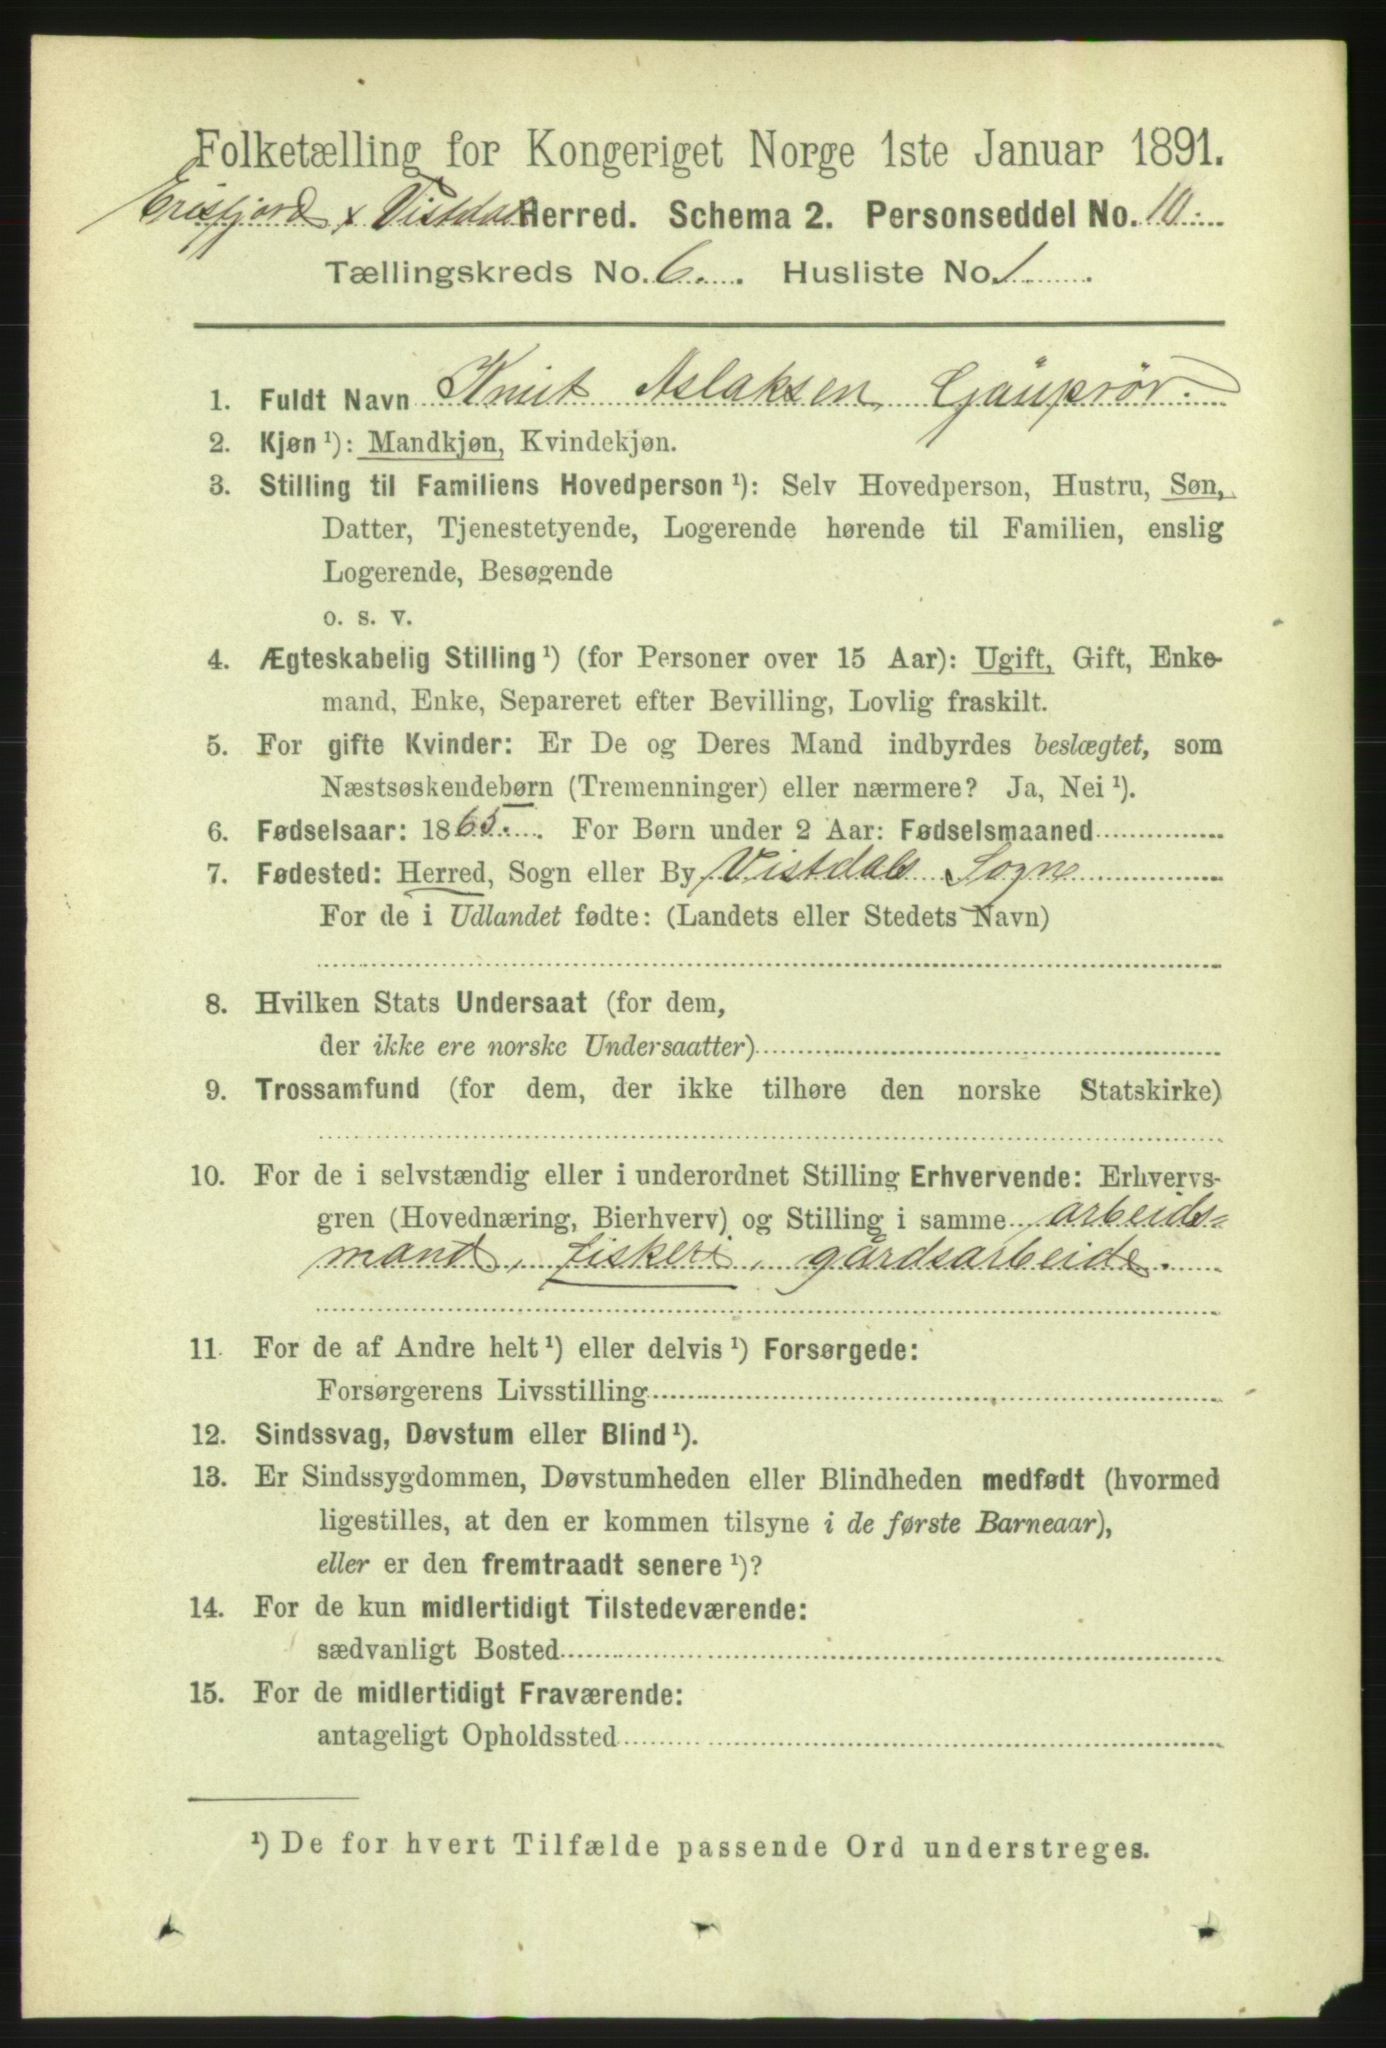 Folketælling for Kongeriget Norge 1ste Januar 1891.
Erisfjord & Vistdal Herred. Schema 2. Personseddel No. 10.
Tællingskreds No. 6. Husliste No. 1
1. Fuldt Navn Knut Aslaksen Gauprør.
2. Kjøn ¹): Mandkjøn, Kvindekjøn.
3. Stilling til Familiens Hovedperson ¹): Selv Hovedperson, Hustru, Søn,
Datter, Tjenestetyende, Logerende hørende til Familien, enslig
Logerende, Besøgende
o. s. v.
4. Ægteskabelig Stilling ¹) (for Personer over 15 Aar): Ugift, Gift, Enke-
mand, Enke, Separeret efter Bevilling, Lovlig fraskilt.
5. For gifte Kvinder: Er De og Deres Mand indbyrdes beslægtet, som
Næstsøskendebørn (Tremenninger) eller nærmere? Ja, Nei ¹).
6. Fødselsaar: 1865. For Børn under 2 Aar: Fødselsmaaned
7. Fødested: Herred, Sogn eller By Vistdals Sogn
For de i Udlandet fødte: (Landets eller Stedets Navn)
8. Hvilken Stats Undersaat (for dem,
der ikke ere norske Undersaatter)
9. Trossamfund (for dem, der ikke tilhøre den norske Statskirke)
10. For de i selvstændig eller i underordnet Stilling Erhvervende: Erhvervs-
gren (Hovednæring, Bierhverv) og Stilling i samme arbeids-
mand, fiskeri, gårdsarbeide.
11. For de af Andre helt ¹) eller delvis ¹) Forsørgede:
Forsørgerens Livsstilling
12. Sindssvag, Døvstum eller Blind ¹).
13. Er Sindssygdommen, Døvstumheden eller Blindheden medfødt (hvormed
ligestilles, at den er kommen tilsyne i de første Barneaar),
eller er den fremtraadt senere ¹)?
14. For de kun midlertidigt Tilstedeværende:
sædvanligt Bosted
15. For de midlertidigt Fraværende:
antageligt Opholdssted
¹) De for hvert Tilfælde passende Ord understreges.